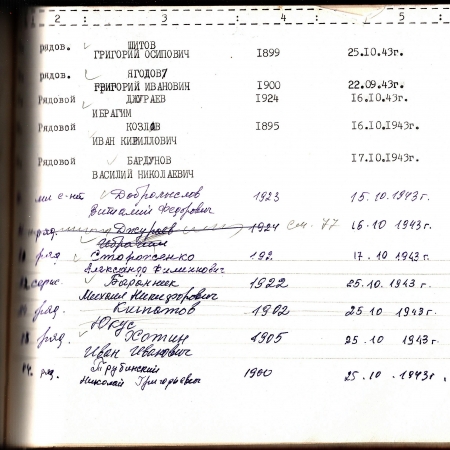 1 2 : 3 : 4 : 5 :
рядов. ШИТОВ 1899 25.10.43г.
ГРИГОРИЙ ОСИПОВИЧ
рядов. ЯГОДОВ 1900 22.09.43г.
ГРИГОРИЙ ИВАНОВИЧ
Рядовой ДЖУРАЕВ 1924 16.10.43г.
ИБРАГИМ
Рядовой КОЗЛОВ 1895 16.10.1943г.
ИВАН КИРИЛЛОВИЧ
Рядовой БАРДУНОВ 17.10.1943г.
ВАСИЛИЙ НИКОЛАЕВИЧ
мл с-нт Добромыслов 1923 15.10.1943г.
Виталий Федорович
ряд. Джураев 1924 См. 77 16.10 1943г.
Ибрагим
ряд Стороженко 192 17.10 1943г.
Александр
Бараннек 1922 25.10.1943г.
Михаил Никифорович
ряд. 1902 25.10 1943г.
Юнус
ряд. Хотин 1905 25.10 1943г.
Иван Иванович
14. ряд. Трубинский 1900 25.10.1943г.
Николай Григорьевич